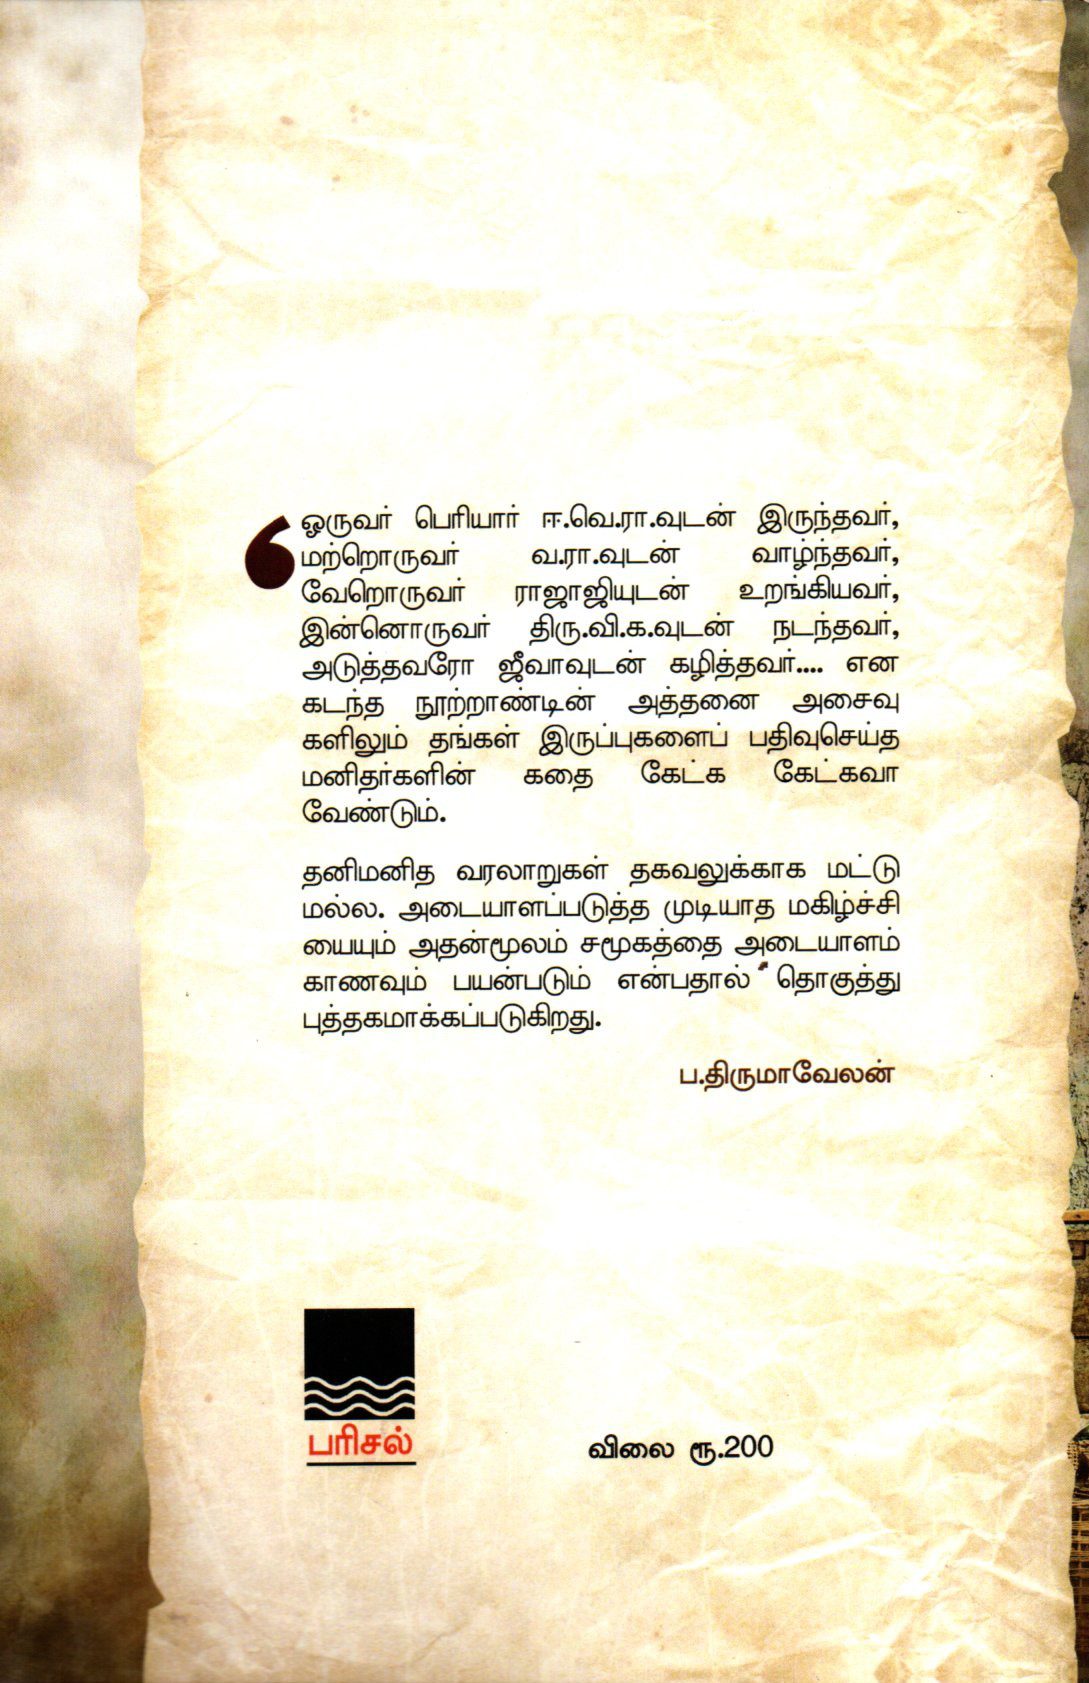 ஒருவர் பெரியார் ஈ.வெ.ரா.வுடன் இருந்தவர்,
மற்றொருவர் வ.ரா.வுடன் வாழ்ந்தவர்,
வேறொருவர் ராஜாஜியுடன் உறங்கியவர்,
இன்னொருவர் திரு.வி.க.வுடன் நடந்தவர்,
அடுத்தவரோ ஜீவாவுடன் கழித்தவர்.... என
கடந்த நூற்றாண்டின் அத்தனை அசைவு
களிலும் தங்கள் இருப்புகளைப் பதிவுசெய்த
மனிதர்களின் கதை கேட்க கேட்கவா
வேண்டும்.
தனிமனித வரலாறுகள் தகவலுக்காக மட்டு
மல்ல. அடையாளப்படுத்த முடியாத மகிழ்ச்சி
யையும் அதன்மூலம் சமூகத்தை அடையாளம்
காணவும் பயன்படும் என்பதால் தொகுத்து
புத்தகமாக்கப்படுகிறது.
ப.திருமாவேலன்
பரிசல்
விலை ரூ.200